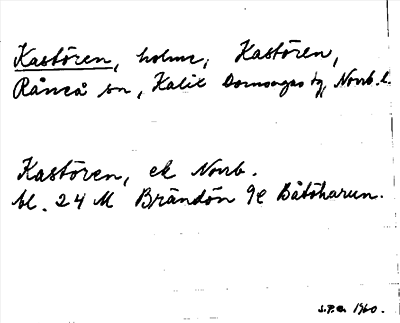 Kastören, holme, Kastören,
Råneå sn, Kalix Domsagas tg, Norrb. l.
Kastören, ek Norrb.
bl. 24 M Brändön 9e Båtöharun.
J.P.G. 1960.